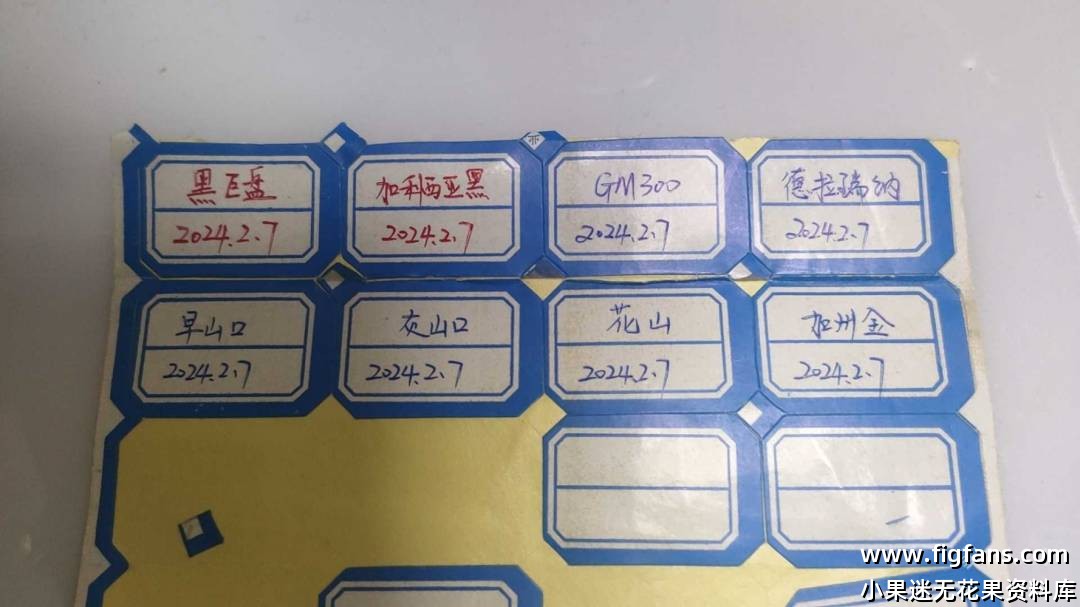 黑巨盘
2024.2.7
加利西亚黑
2024.2.7
GM300
2024.2.7
德拉瑞纳
2024.2.7
早山口
2024.2.7
灰山口
2024.2.7
花山
2024.2.7
加州金
2024.2.7
www.figfans.com
小果迷无花果资料库